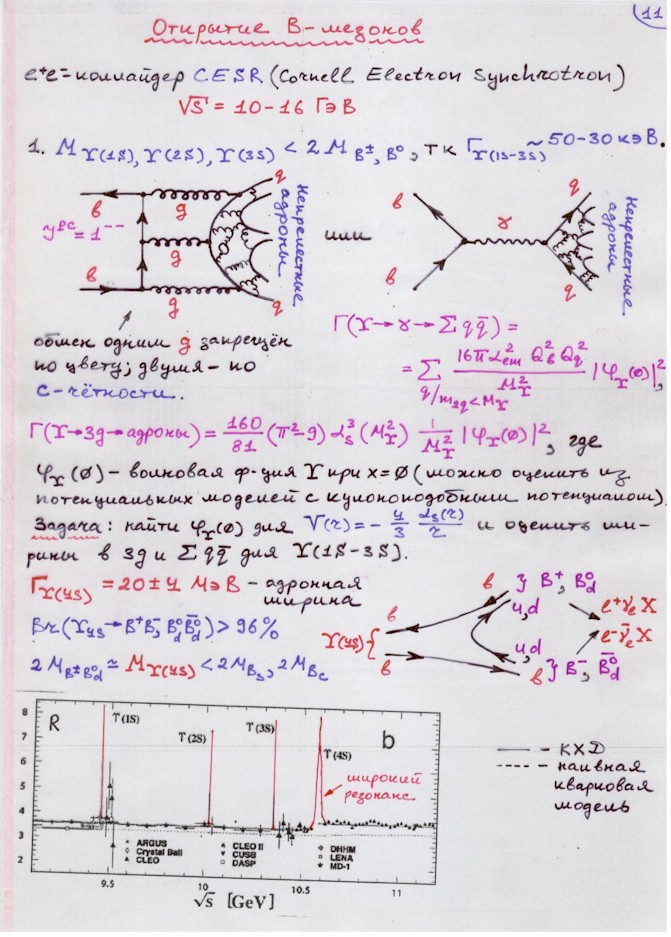 11
Открытие B-мезонов
e⁺e⁻-коллайдер CESR (Cornell Electron Synchrotron)
√s = 10-16 ГэВ
1. M_Υ(1S), Υ(2S), Υ(3S) < 2M_B±, B⁰, тк Γ_Υ(1S-3S) ~ 50-30 кэВ.
b g q
J^PC = 1⁻⁻ g
b g q
Непрелестные адроны
или
b γ q
b q
Непрелестные адроны
обмен одним g запрещён
по цвету; двумя - по
C-чётности.
Γ(Υ→γ→Σqq̄) =
= Σ_{q/m_{2q}<M_Υ} 16πα²_em Q²_b Q²_q / M²_Υ |φ_Υ(0)|²,
Γ(Υ→3g→адроны) = 160/81 (π²-9) α³_s (M²_Υ) 1/M²_Υ |φ_Υ(0)|², где
φ_Υ(0) - волновая ф-ция Υ при x=0 (можно оценить из
потенциальных моделей с кулоноподобным потенциалом).
Задача: найти φ_Υ(0) для V(r) = - 4/3 α_s(r)/r и оценить ши-
рины в 3g и Σqq̄ для Υ(1S-3S).
Γ_Υ(4S) = 20±4 МэВ - адронная
ширина
Br(Υ_4S → B⁺B⁻, B⁰_d B̄⁰_d) > 96%
2M_B±B⁰_d ≃ M_Υ(4S) < 2M_Bs, 2M_Bc
Υ(4S) { b b
b } B⁺, B⁰_d
u,d
u,d
b } B⁻, B̄⁰_d
e⁺ν_e X
e⁻ν̄_e X
R
b
Υ(1S)
Υ(2S)
Υ(3S)
Υ(4S)
широкий
резонанс
8
7
6
5
4
3
2
ARGUS CLEO II DHHM
Crystal Ball CUSB LENA
CLEO DASP MD-1
9.5 10 10.5 11
√s [GeV]
—— - КХД
---- - наивная
кварковая
модель